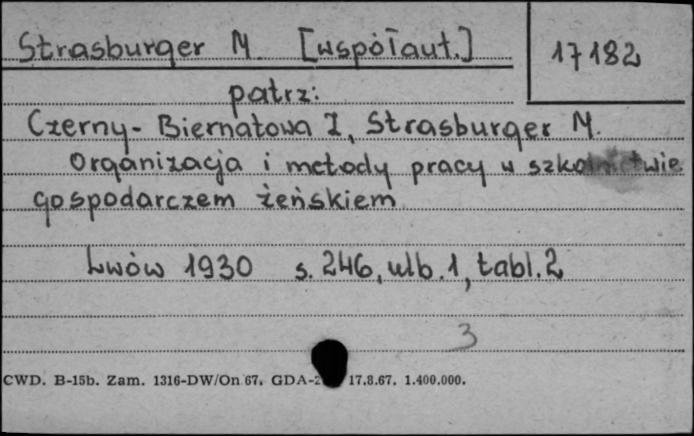 Strasburger M. [współaut.]
17182
patrz:
Czerny-Biernatowa Z, Strasburger M.
Organizacja i metody pracy w szkolnictwie
gospodarczem żeńskiem
Lwów 1930 s. 246, ulb. 1, tabl. 2
3
CWD. B-15b. Zam. 1316-DW/On 67. GDA-2 17.8.67. 1.400.000.